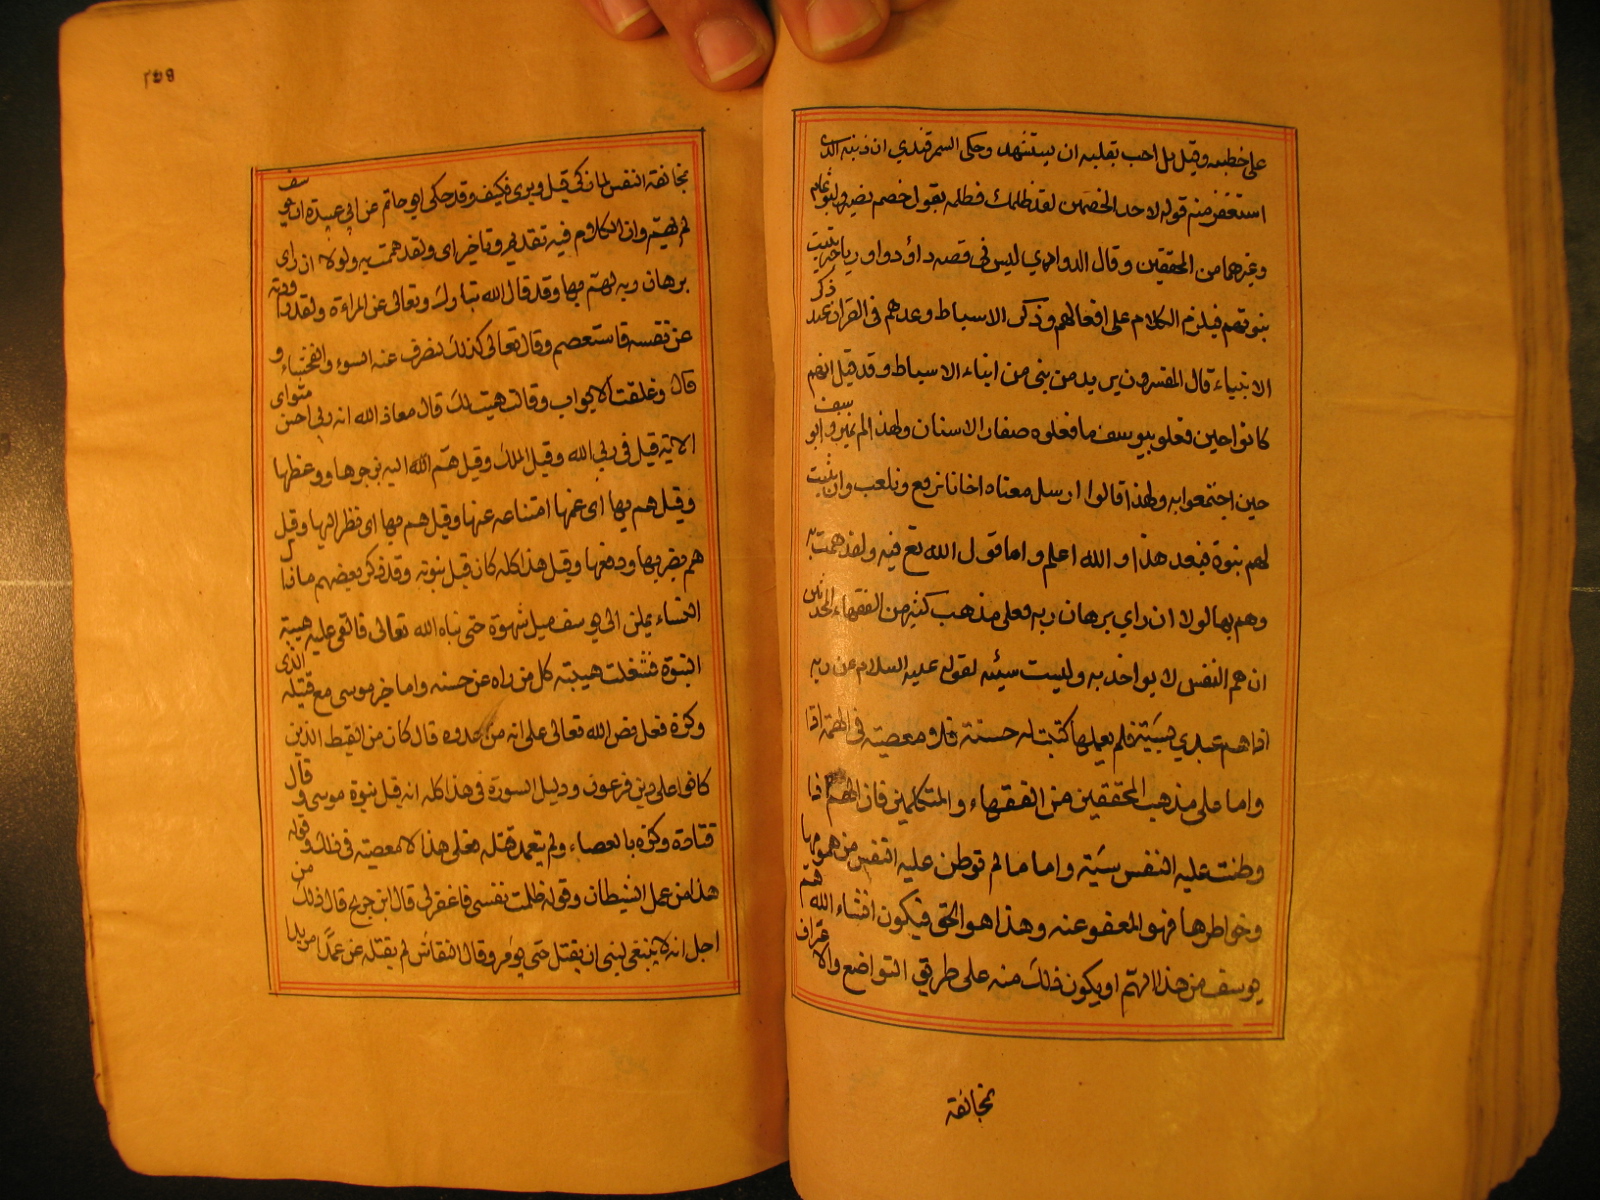 على خطبته وقيل بل احب بقلبه ان يستشهد وحكى السمرقندي ان ذنبه الذى
استغفر منه قوله لاحد الخصمين لقد ظلمك فظلمه بقول خصمه
وغيرهما من المحققين وقال الداودي ليس في قصه داؤد واوريا خبر يثبت
بنوتهم فيلزم الكلام على افعالهم وذكر الاسباط وعدهم فى القران عند ذكر
الانبياء قال المفسرون يريد من نبى من ابناء الاسباط وقد قيل انهم
كانوا حين فعلوا بيوسف ما فعلوه صغار الاسنان ولهذا لم يميزوا يوسف
حين اجتمعوا به ولهذا قالوا ارسل معناه اخانا نرتع ونلعب وان يثبت
لهم نبوة فبعد هذا و الله اعلم واما قول الله تع فيه ولقد همت به
وهم بها لولا ان راي برهان ربه فعلى مذهب كثير من الفقهاء المحدثين
ان هم النفس لا يواخذ به وليست سيئه لقوله عليه السلام عن ربه
اذا هم عبدي بسيئة فلم يعملها كتبت له حسنة فلا معصيته فى الهمة اذا
واما على مذهب المحققين من الفقهاء والمتكلمين فان الهم اذا
وطنت عليه النفس سيئة واما ما لم توطن عليه النفس من همومها
وخواطرها فهو المعفو عنه وهذا هو الحق فيكون انشاء الله هم
يوسف من هذا الهم او يكون ذلك منه على طريق التواضع والاعتراف
بمخائفة
بمخائفة النفس لما زكى قيل وبرى فكيف وقد حكى ابو حاتم عن ابى عبيدة ان يوسف
لم يهتم وان الكلام فيه تقديم وتاخير اى ولقد همت به ولولا ان راى
برهان ربه لهتم بها وقد قال الله تبارك وتعالى عن المراءة ولقد راودته
عن نفسه فاستعصم وقال تعالى كذلك لنصرف عنه السوء والفحشاء و
قال وغلقت الابواب وقالت هيت لك قال معاذ الله انه ربى احسن مثواى
الاية قيل فى ربي الله وقيل الملك وقيل همّ الله اليه بزجرها ووعظها
وقيل هم بها اى غمها امتناعه عنها وقيل هم بها اى نظر اليها وقيل
هم بضربها ودفعها وقيل هذا كله كان قبل نبوته وقد ذكر بعضهم مازال
النساء يملن الى يوسف ميل شهوة حتى نباه الله تعالى فالقى عليه هيبة
النبوة فشغلت هيبته كل من راه عن حسنه واما خبر موسى مع قتيله الذى
وكزه فعل قص الله تعالى على انه من عدوه قال كان من القبط الذين
كانوا على دين فرعون ودليل السورة فى هذا كله انه قبل نبوة موسى وقال
قتادة وكزه بالعصاء ولم يتعمد قتله فعلى هذا لا معصية فى ذلك وقوله
هذا من عمل الشيطان وقوله ظلمت نفسى فاغفر لى قال ابن جريج قال ذلك من
اجل انه لا ينبغى لنبى ان يقتل حتى يؤمر وقال النقاش لم يقتله عن عمدٍ مريدا